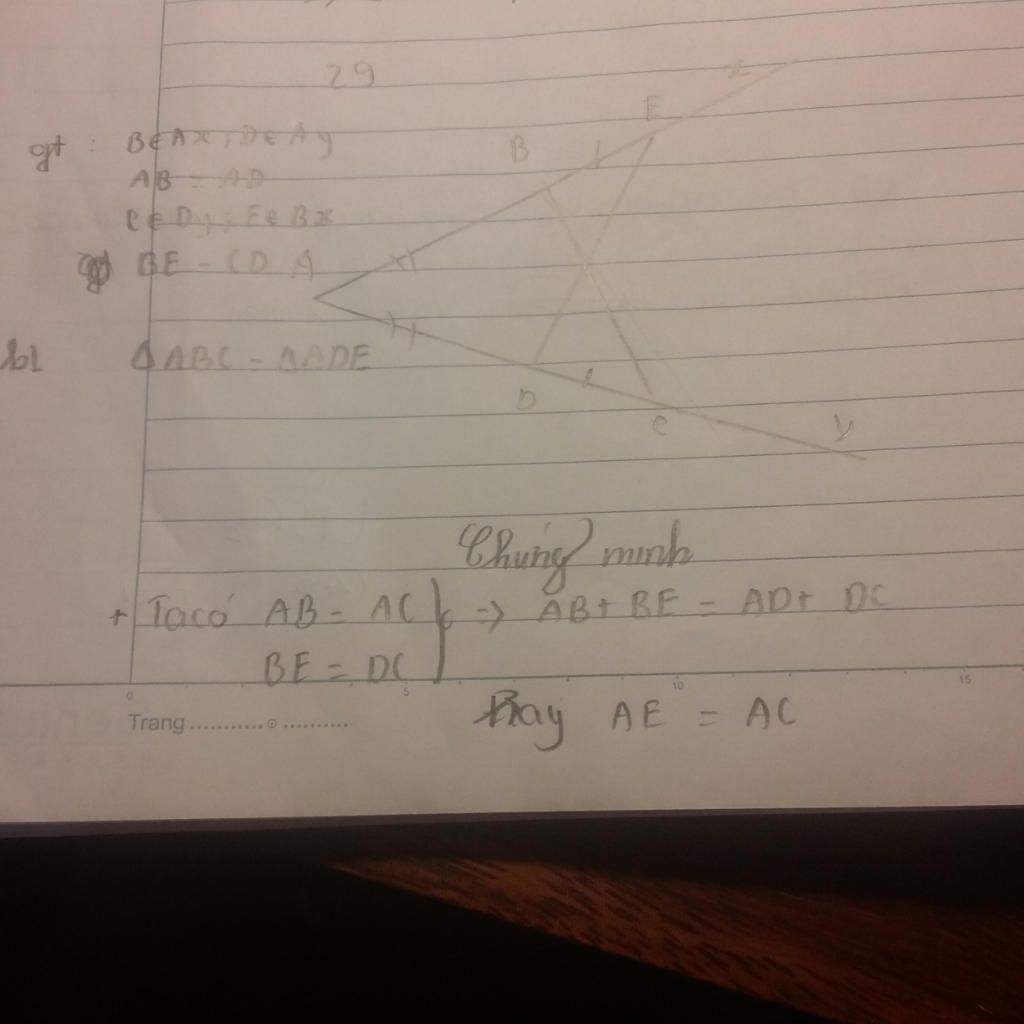 29
gt : B∈Ax ; D∈Ay
AB = AD
C∈Dy ; E∈Bx
BE = CD
kl ΔABC = ΔADE
x
E
B
A
D
C
y
Chứng minh
+ Ta có AB = AC } => AB + BE = AD + DC
BE = DC
Hay AE = AC
0 5 10 15
Trang